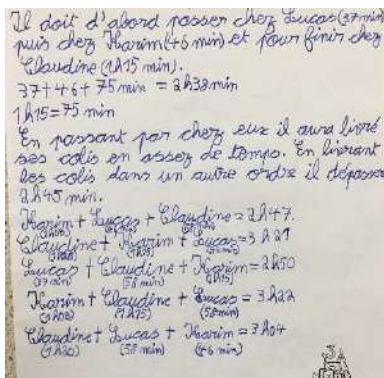 Il doit d'abord passer chez Lucas (37 min)
puis chez Karim (46 min) et pour finir chez
Claudine (1h15 min).
37+46+75 min = 2h38min
1h15=75 min
En passant par chez eux il aura livré
ses colis en assez de temps. En livrant
les colis dans un autre ordre il dépasse
2h45 min.
Karim + Lucas + Claudine = 2h47.
Claudine + Karim + Lucas = 3h21
Lucas + Claudine + Karim = 2h50
(37 min) (58 min) (1h15)
Karim + Claudine + Lucas = 3h22
(1h08) (1h15) (58min)
Claudine + Lucas + Karim = 3h04
(1h20) (58 min) (46 min)